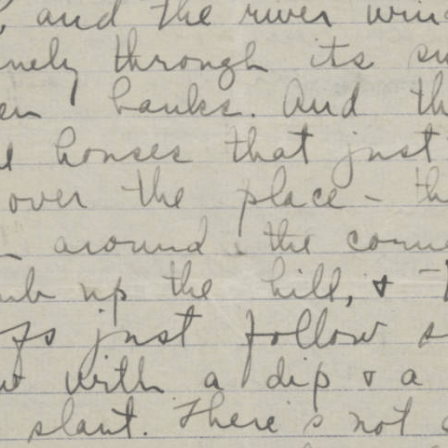 and the river win
through its su
banks. And th
houses that just
over the place - th
around the corn
up the hill, &
just follow s
with a dip & a
slant. There's not